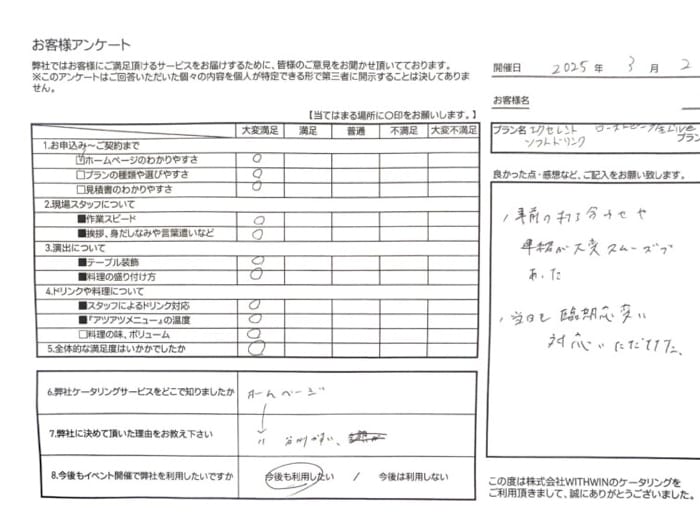 お客様アンケート
弊社ではお客様にご満足頂けるサービスをお届けするために、皆様のご意見をお聞かせ頂いております。
※このアンケートはご回答いただいた個々の内容を個人が特定できる形で第三者に開示することは決してありま
せん。
開催日 2025 年 3 月 2
お客様名
【当てはまる場所に〇印をお願いします。】
プラン名 エクセレント ローストビーフ Live
ソフトドリンク プラン
大変満足 満足 普通 不満足 大変不満足
1.お申込み～ご契約まで
□ホームページのわかりやすさ ○
□プランの種類や選びやすさ ○
□見積書のわかりやすさ ○
2.現場スタッフについて
■作業スピード ○
■挨拶、身だしなみや言葉遣いなど ○
3.演出について
■テーブル装飾 ○
■料理の盛り付け方 ○
4.ドリンクや料理について
■スタッフによるドリンク対応 ○
■『アツアツメニュー』の温度 ○
□料理の味、ボリューム ○
5.全体的な満足度はいかがでしたか ○
良かった点・感想など、ご記入をお願い致します。
事前の打ち合わせや
準備が大変スムーズで
あった
当日も臨機応変に
対応いただけた。
6.弊社ケータリングサービスをどこで知りましたか ホームページ
7.弊社に決めて頂いた理由をお教え下さい 〃 分かりやすい、
8.今後もイベント開催で弊社を利用したいですか 今後も利用したい / 今後は利用しない
この度は株式会社WITHWINのケータリングを
ご利用頂きまして、誠にありがとうございました。